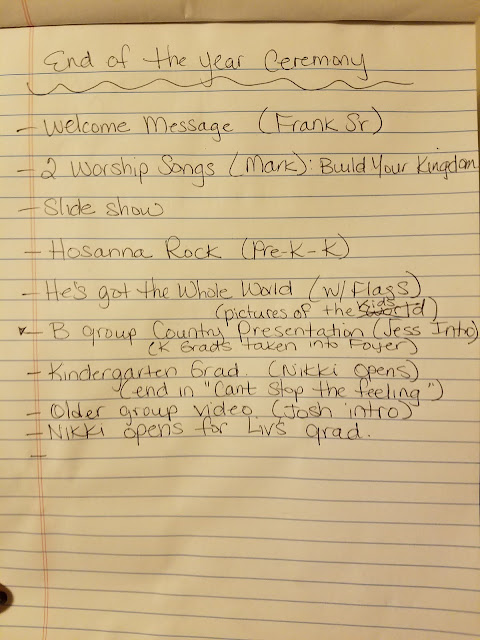 End of the year Ceremony
- Welcome Message (Frank Sr)
- 2 Worship Songs (Mark): Build Your Kingdom
- Slide show
- Hosanna Rock (Pre-K-K)
- He's got the Whole World (w/ Flags)
(pictures of the kids)
- B group Country Presentation (Jess Intro)
(K Grads taken into Foyer)
- Kindergarten Grad. (Nikki opens)
(end in "Cant stop the feeling")
- Older group video. (Josh intro)
- Nikki opens for Liv's grad.
-